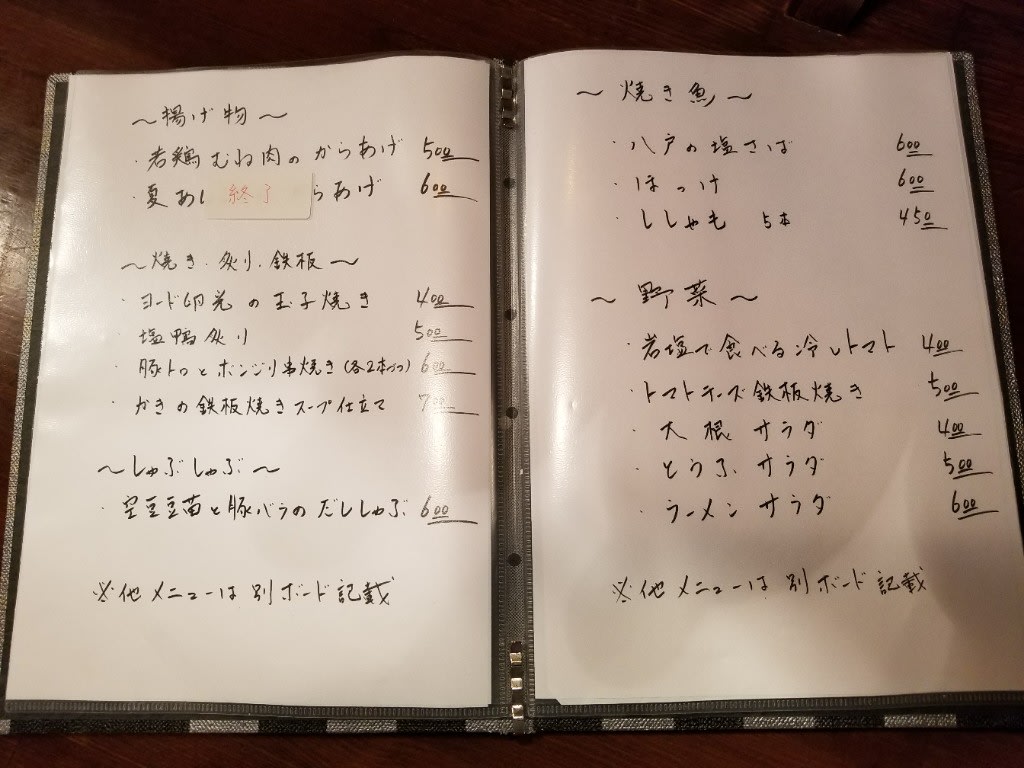 ～揚げ物～
・若鶏むね肉のからあげ 500
・夏あし 終了 らあげ 600
～焼き.炙り.鉄板～
・ヨード卵光の玉子焼き 400
・塩鴨炙り 500
・豚トロとボンジリ串焼き(各2本づつ) 600
・かきの鉄板焼きスープ仕立て 700
～しゅぶしゅぶ～
・空豆豆苗と豚バラのだししゅぶ 600
※他メニューは別ボード記載
～焼き魚～
・八戸の塩さば 600
・ほっけ 600
・ししゃも 5本 450
～野菜～
・岩塩で食べる冷しトマト 400
・トマトチーズ鉄板焼き 500
・大根サラダ 400
・とうふサラダ 500
・ラーメンサラダ 600
※他メニューは別ボード記載